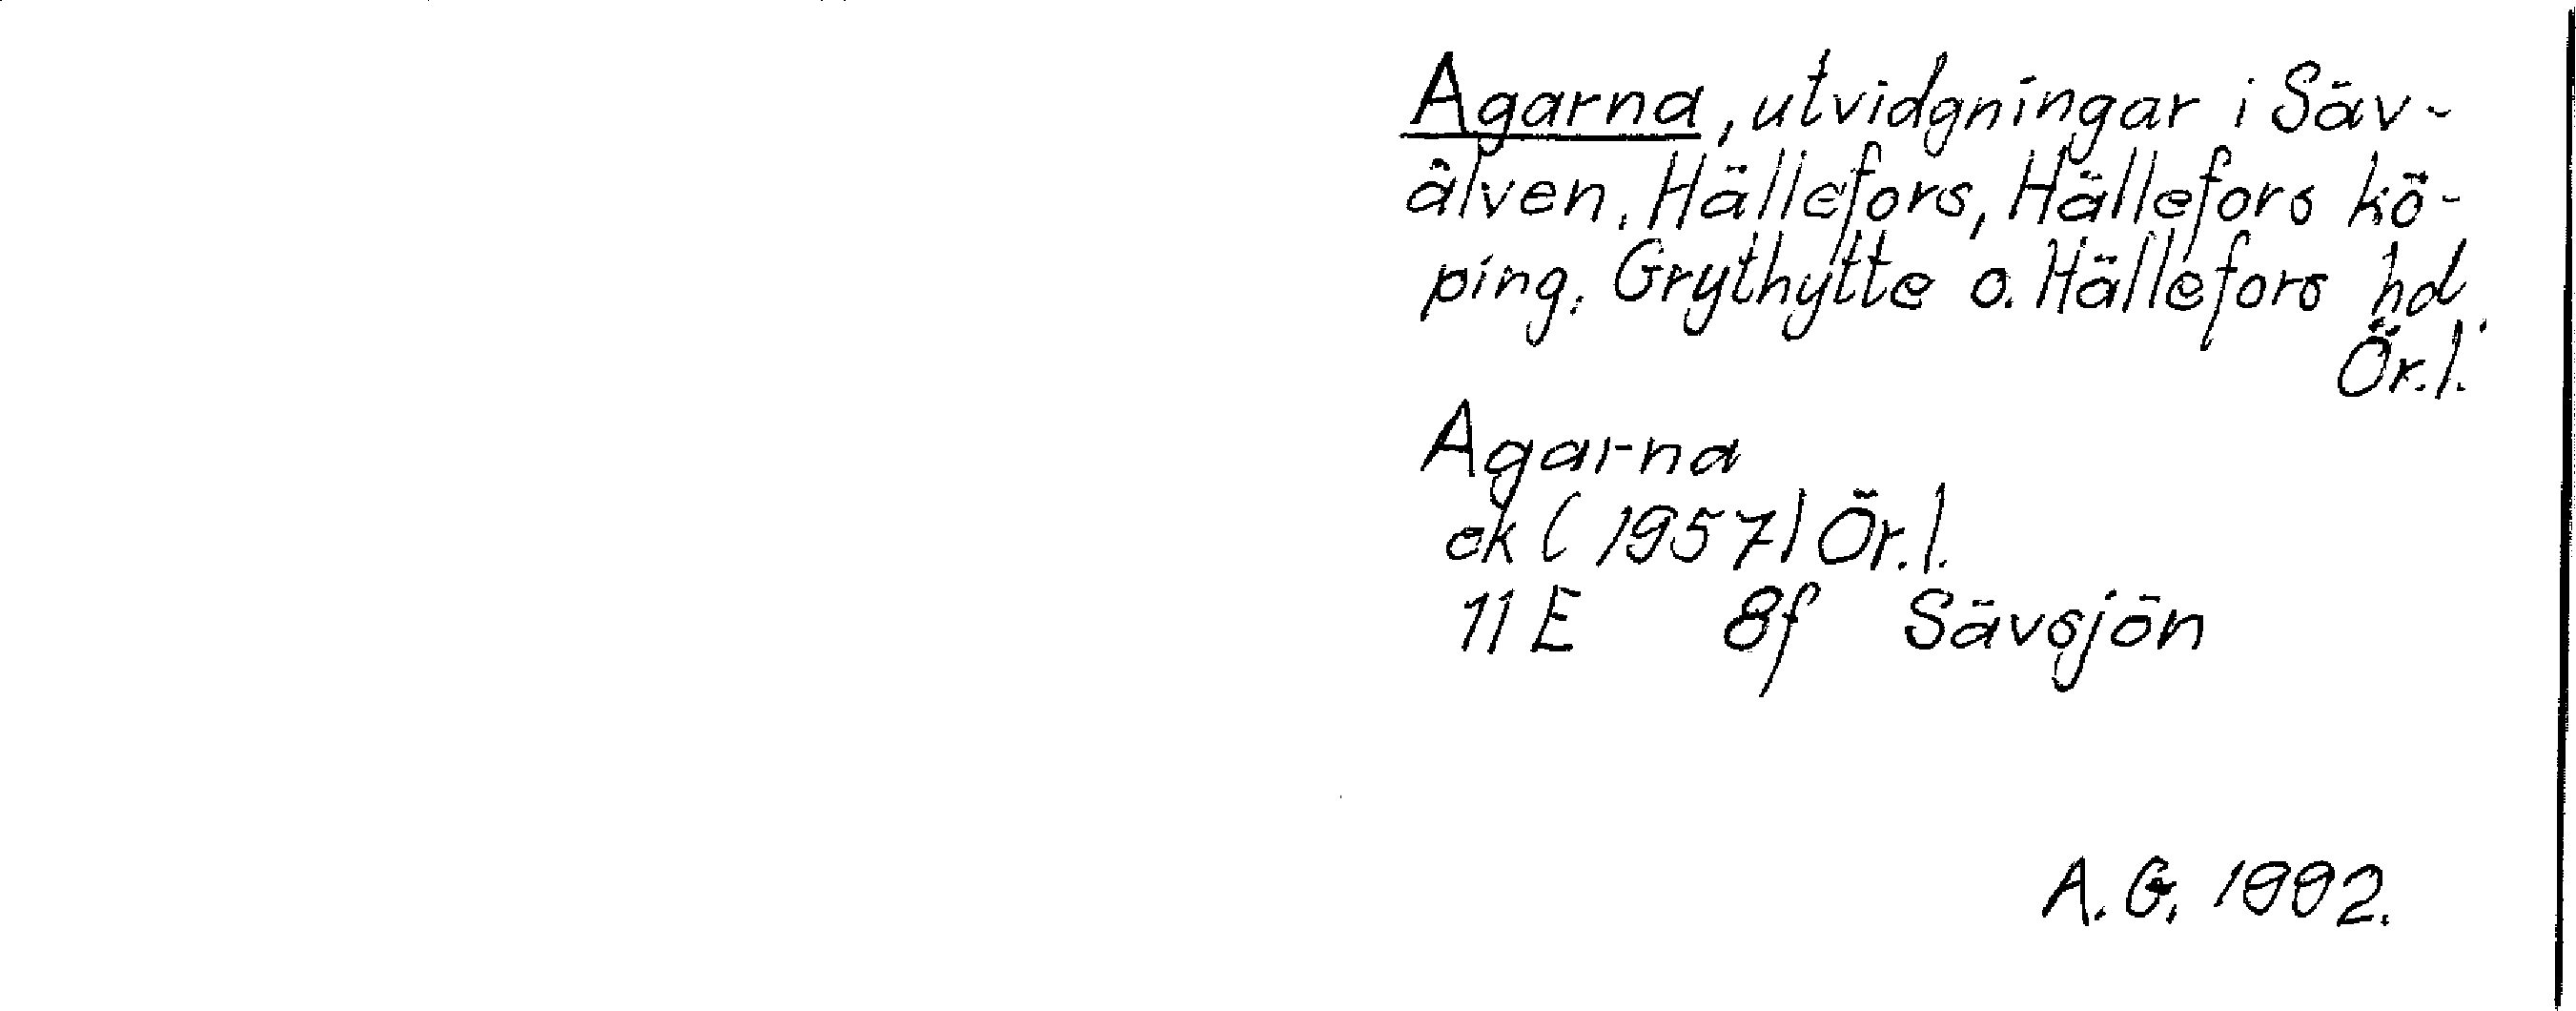 Agarna, utvidgningar i Säv-
älven, Hällefors, Hällefors kö-
ping, Grythytte o. Hällefors hd.
Ör.l.
Agarna
ek (1957) Ör.l.
11 E 8f Sävsjön
A.G. 1992.